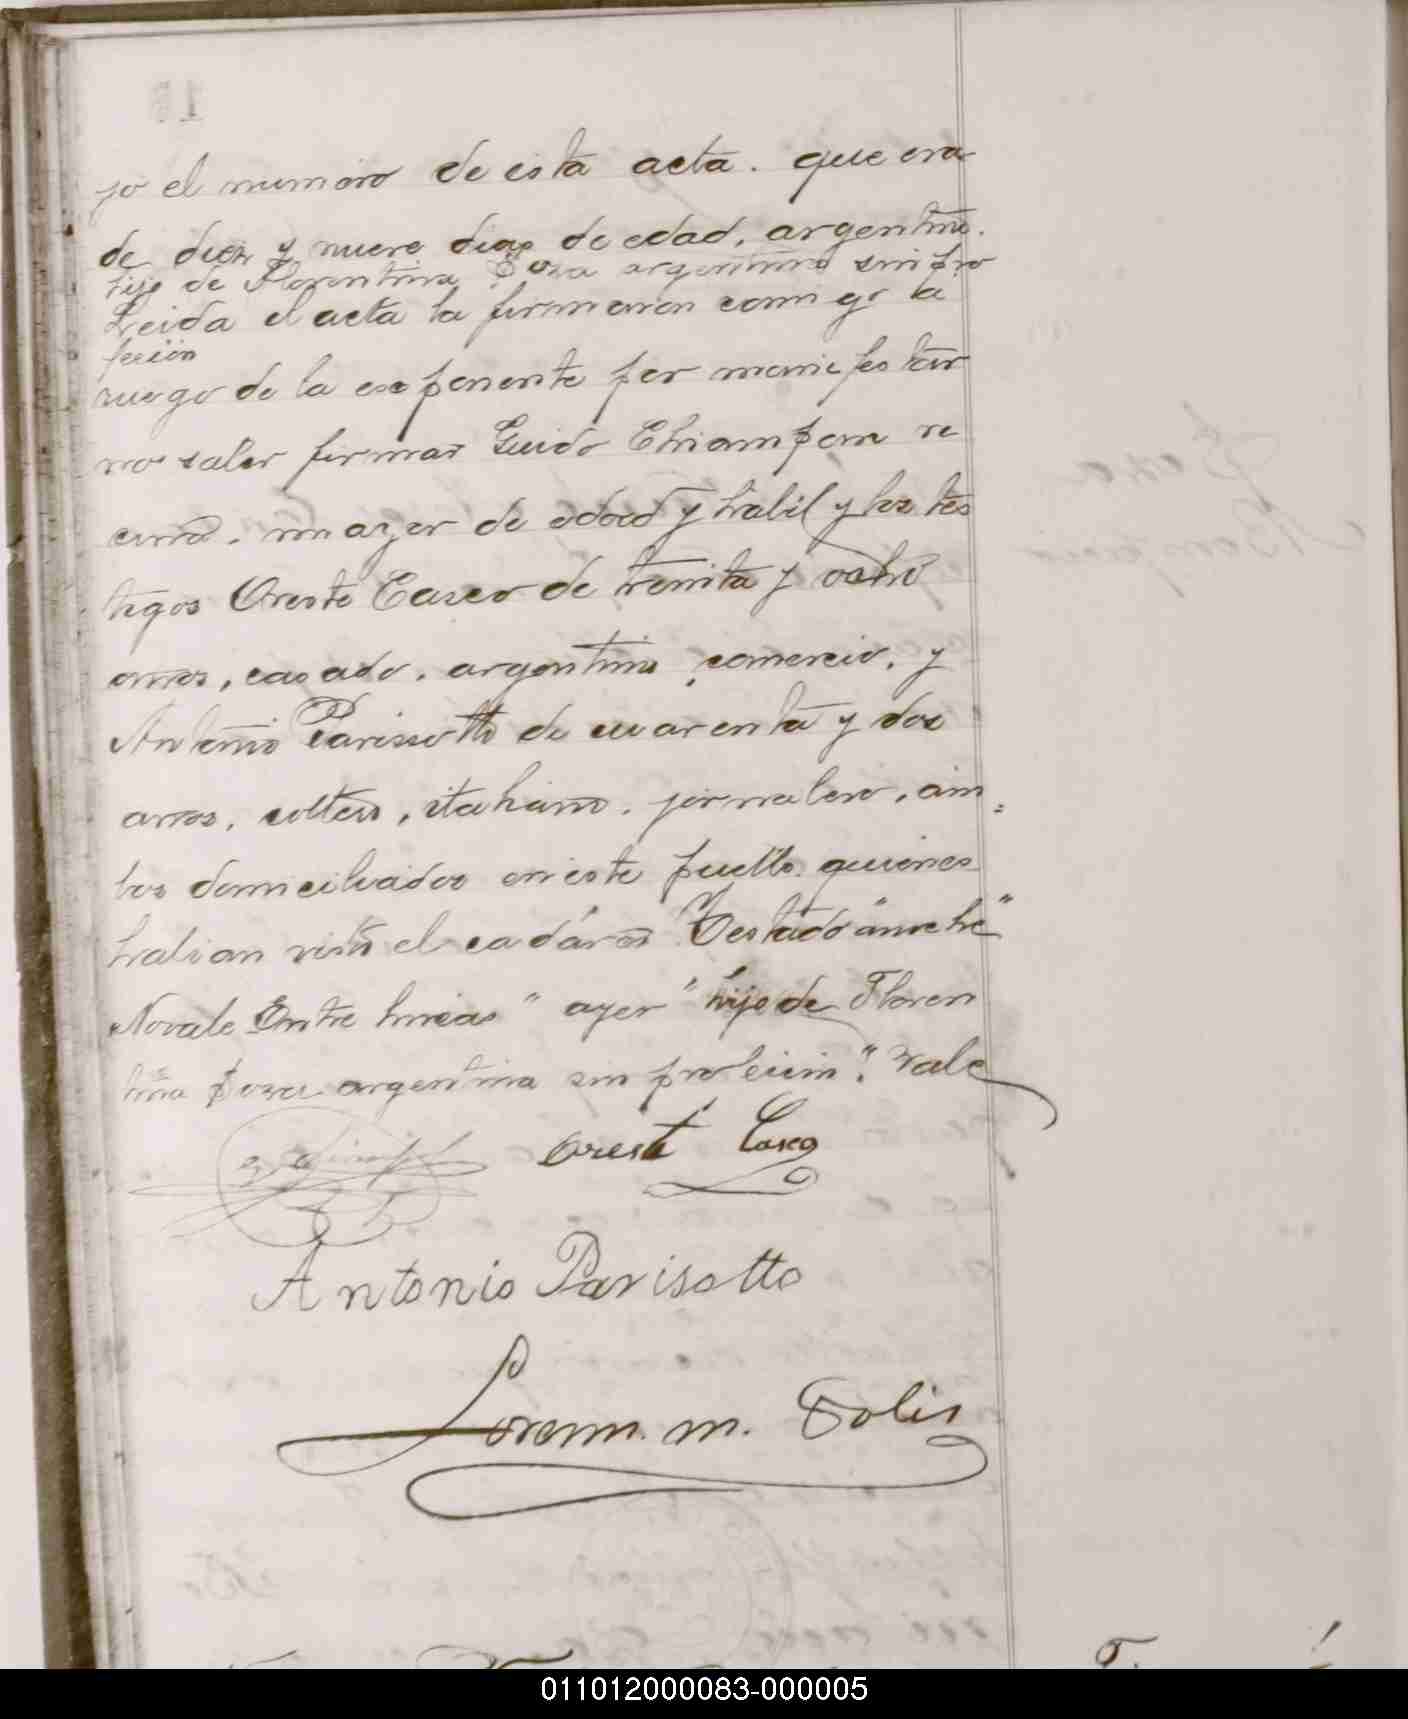 jo el numero de esta acta. que era
de diez y nueve dias de edad, argentino.
hijo de Florentina Sosa argentina sin pro
Leida el acta la firmaron conmigo a
fecion
ruego de la exponente por manifestar
no saber firmar Guido Chiampan ve
cino, mayor de edad y habil y los tes
tigos Oreste Casco de treinta y ocho
años, casado, argentino, comercio, y
Antonio Parissotto de cuarenta y dos
años, soltero, italiano, jornalero, am
bos domiciliados en este pueblo quienes
habian visto el cadáver Testado "anoche"
No vale Entre lineas "ayer" "hijo de Floren
tina Sosa argentina sin profecion". Vale
Oreste Casco
Antonio Parisotto
Lorenzo M. Solis
011012000083-000005